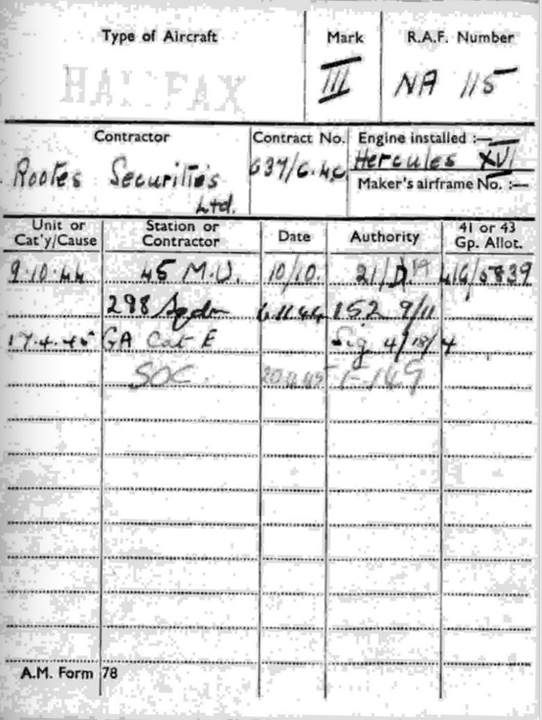 Type of Aircraft Mark R.A.F. Number
HALIFAX III NA 115
Contractor Contract No. Engine installed :—
Rootes Securities 637/G.44 Hercules XVI
Ltd. Maker's airframe No. :—
Unit or Cat'y/Cause Station or Contractor Date Authority 41 or 43 Gp. Allot.
9.10.44 45 M.U. 10/10. 21/D. 416/5839
298 Sqdn 6.11.44 152 9/11
17.4.45 GA Cat E Sig 4/18/4
SOC. 20.4.45 F.149
A.M. Form 78